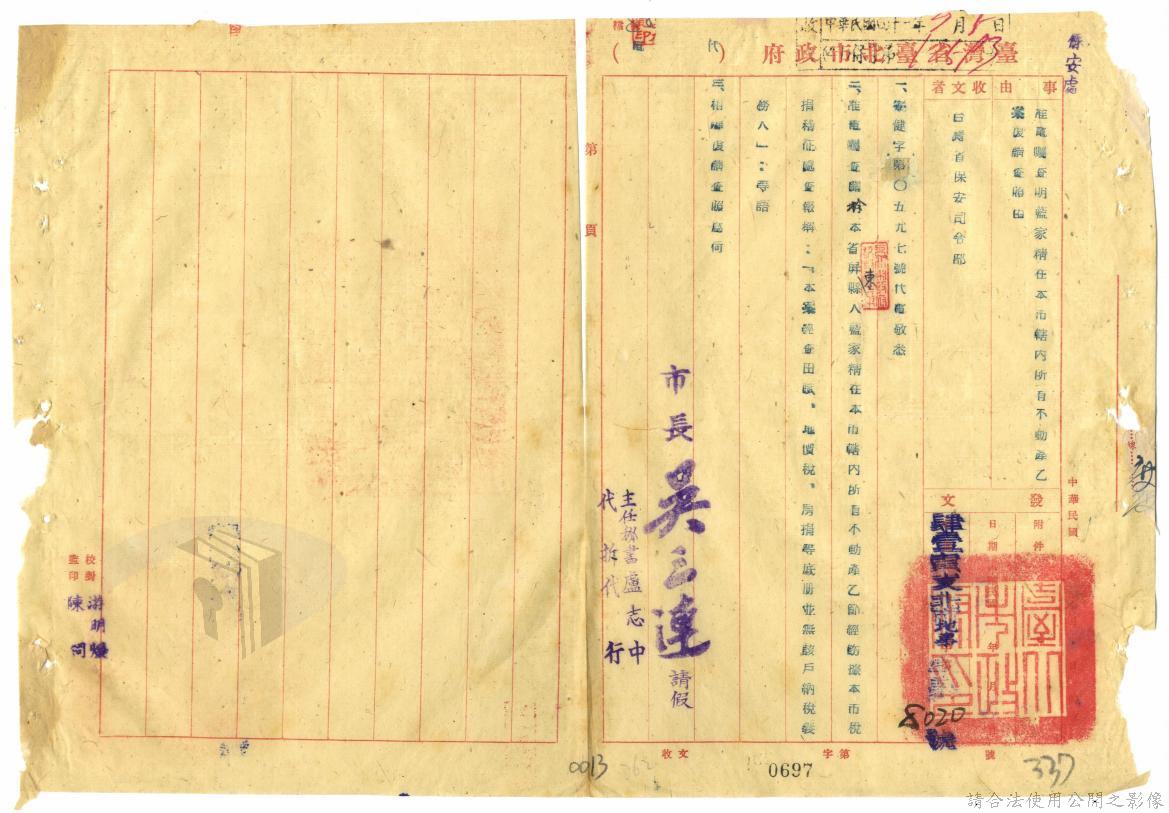 中華民國四十一年7月5日
保安處
臺灣省臺北市政府
(代電)
事由
收文者
准電囑查明藍家精在本市轄內所有不動產乙
案復請查照由
台灣省保安司令部
發文
附件
日期
中華民國
年
月
肆壹
北市地
8020
號
一、安健字第〇五九七號代電敬悉
二、准電囑查本省屏東縣人藍家精在本市轄內所有不動產乙節經飭據本市稅
捐稽征處查報稱：「本案經查田賦、地價稅、房捐等底册並無該戶納稅義
務人」：等語
三、相應復請查照為何
市長吳三連請假
主任秘書盧志中
代拆代行
第
頁
校對
監印
陳
游明
收文
字第
0697
0013
337
請合法使用公開之影像